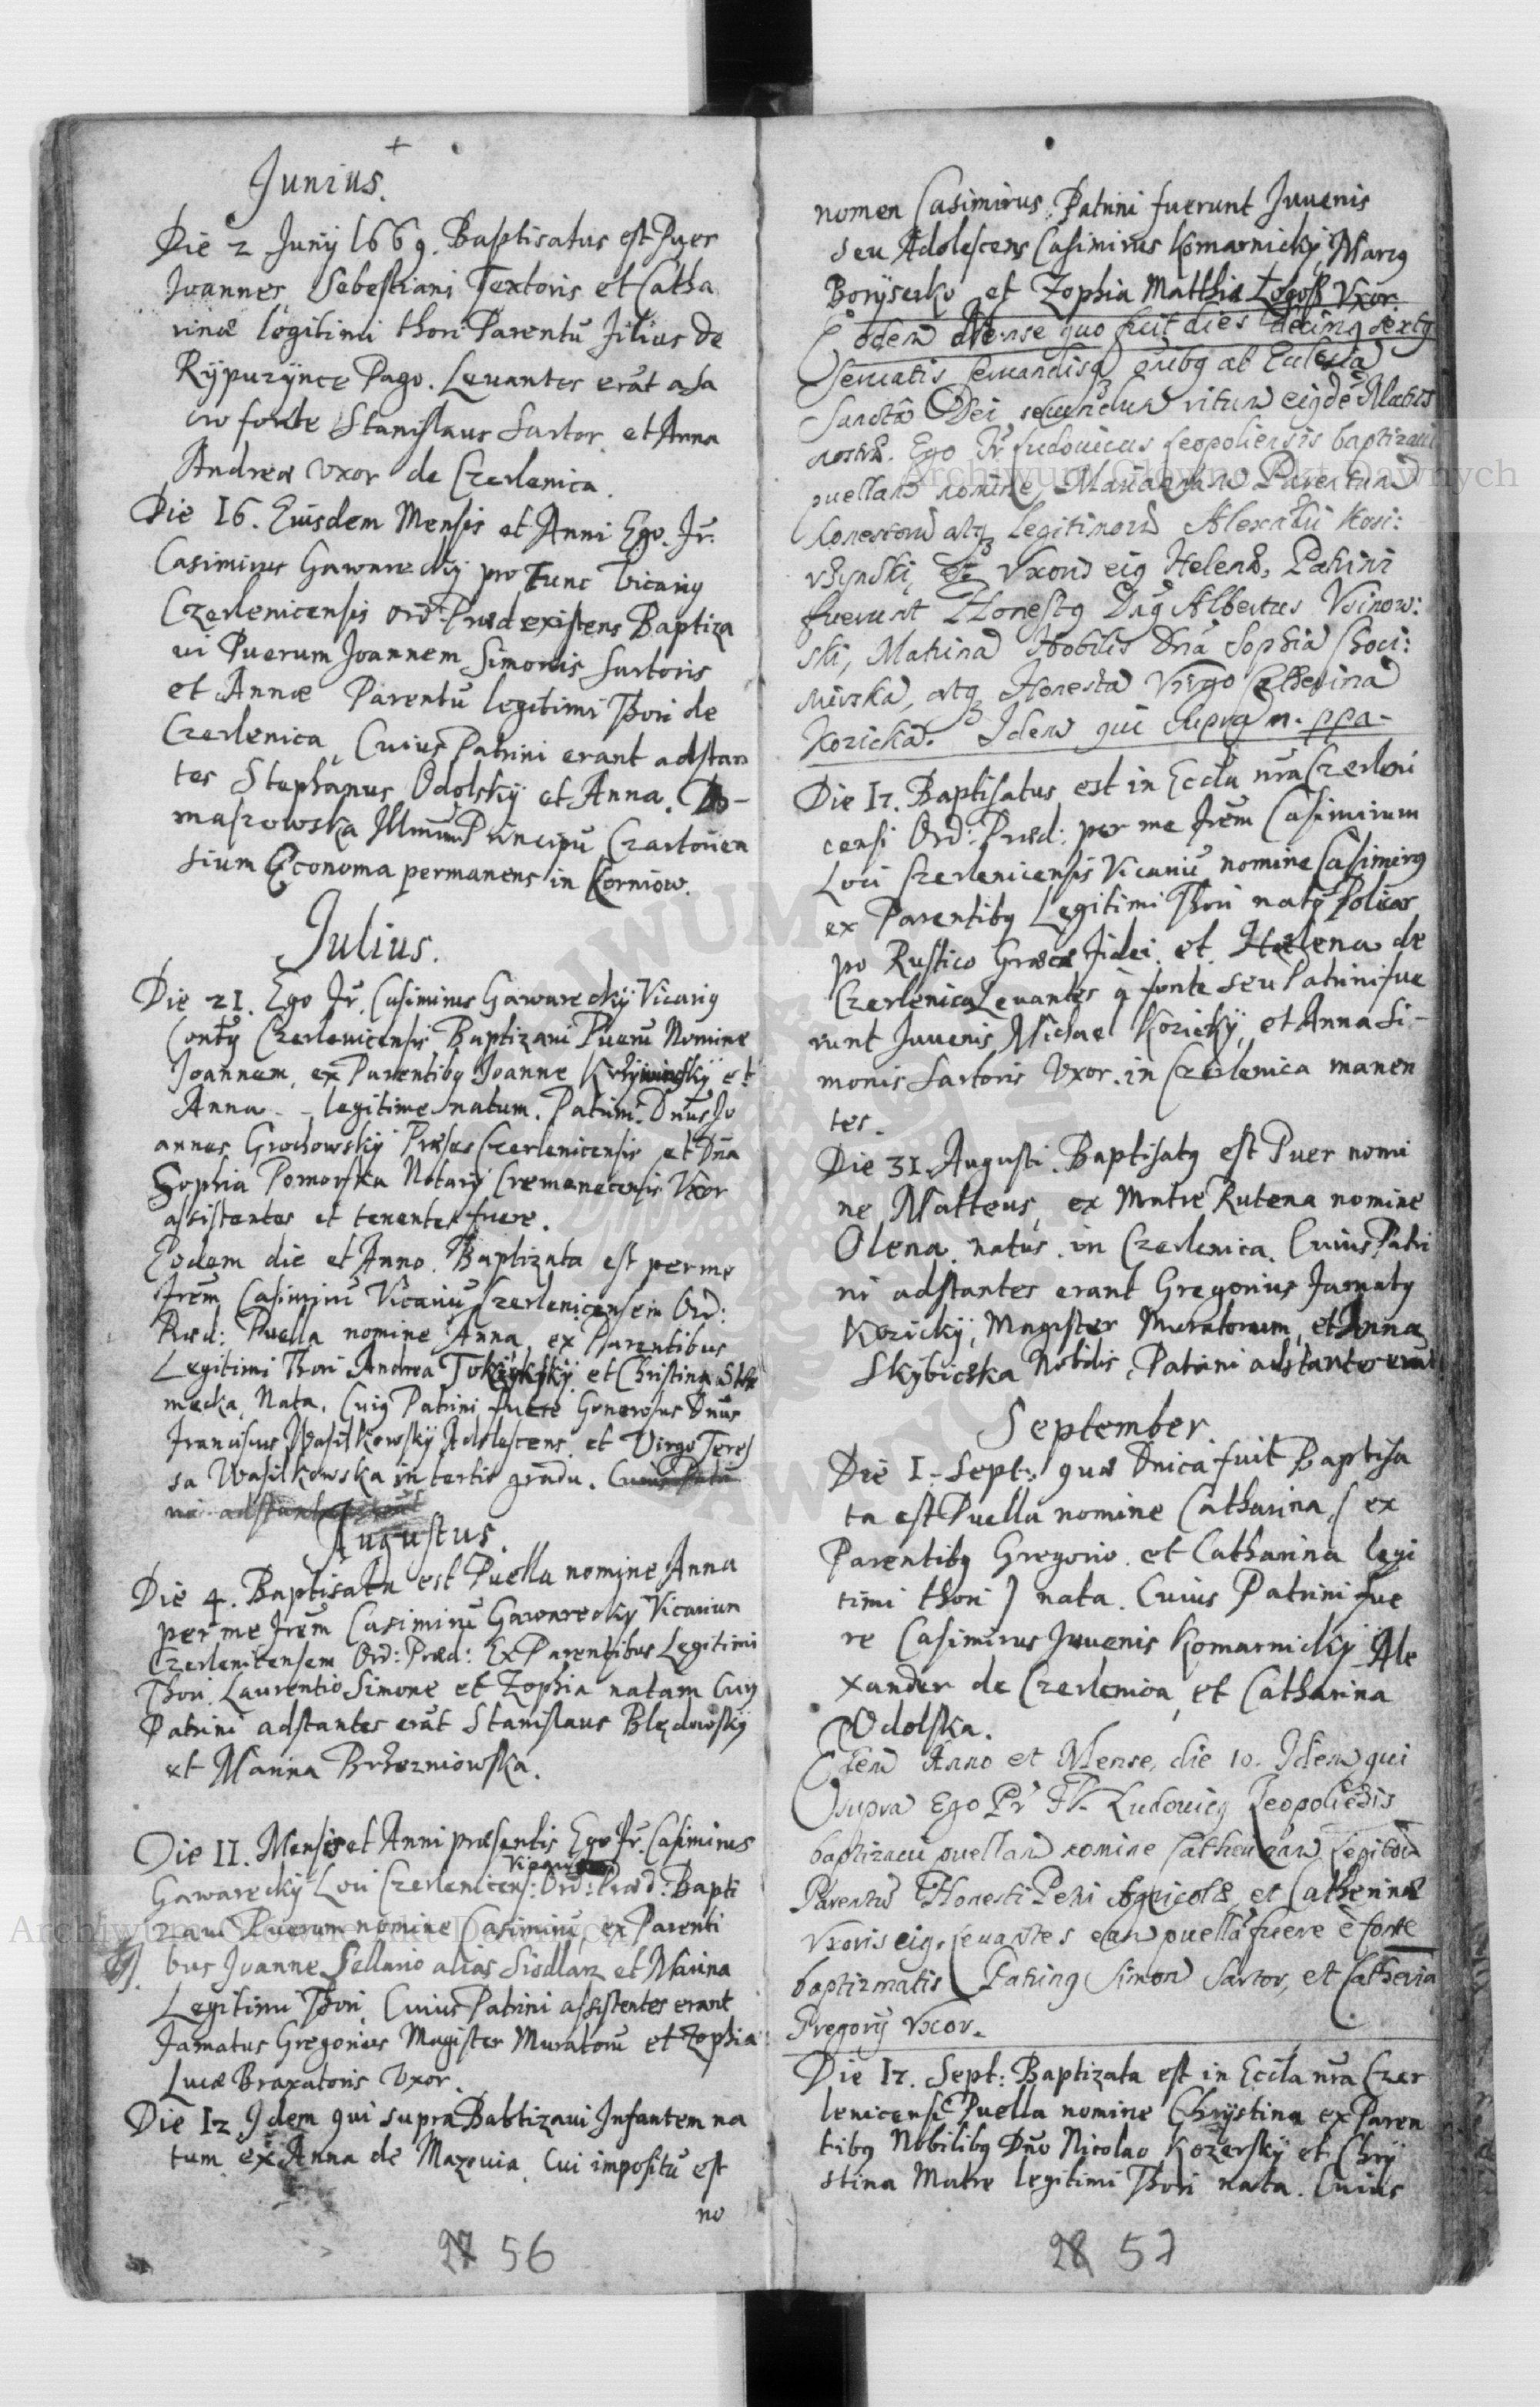 Junius.
Die 2 Junij 1669. Baptisatus est Puer
Joannes, Sebestiani Textoris et Catha
rinæ legitimi thori Parentũ filius de
Rÿpuzÿnce Pago. Leuantes erãt a sa
cro fonte Stanislaus Sartor et Anna
Andreæ Vxor de Czerlenica.
Die 16. Eiusdem Mensis et Anni Ego. Fr.
Casimirus Gawareckÿ pro tunc Vicarig
Czerlenicensis Ord: Præd existens Baptiza
ui Puerum Joannem Simonis Sartoris
et Annæ Parentũ legitimi Thori de
Czerlenica, Cuius Patrini erant adstan
tes Stephanus Odolskÿ et Anna. To-
maszowska Illmum Principũ Czartorien
sium Economa permanens in Korniow.
Julius.
Die 21. Ego Fr. Casimirus Gawareckÿ Vicarig
Czerlenicensis Baptizaui Puerũ Nomine
Joannem, ex Parentibg Joanne et
Anna - - legitime natum. Patrini Dnus Jo
annes Grochowskÿ Præses Czerlenicensis et Dna
Sophia Pomorska Notarÿ Cremenecensis Vxor
assistentes et tenentes fuere.
Eodem die et Anno. Baptizata est per me
Frem Casimirũ Vicariũ Czerlenicensem Ord:
Præd: Puella nomine Anna, ex Parentibus
Legitimi Thori Andrea et Christina
mecka, Nata. Cuig Patrini fuere Generosus Dnus
Franciscus Wasilkowskÿ Adolescens et Virgo Teres
sa Wasilkowska in tertio gradu. Cuius Patri
ni adstantes erãt
Augustus.
Die 4. Baptisata est Puella nomine Anna
per me Frem Casimirũ Gawareckÿ Vicarium
Czerlenicensem Ord: Præd: Ex Parentibus Legitimi
Thori Laurentio Simone et Zophia natam Cuig
Patrini adstantes erãt Stanislaus Blędowskÿ
et Marina Brzozniowska.
Die 11. Mensis et Anni præsentis Ego Fr. Casimirus
Vicarius
Gawareckÿ Loci Czerlenicens: Ord: Præd: Bapti
zaui Puerum nomine Casimirũ, ex Parenti
bus Joanne Sellario alias Siodlarz et Marina
Legitimi Thori. Cuius Patrini assistentes erant
Famatus Gregorius Magister Muratorũ et Zophia
Lucæ Braxatoris Vxor.
Die 12 Idem qui supra Babtizaui Infantem na
tum ex Anna de Mazouia, Cui impositũ est
no
27 56
nomen Casimirus. Patrini fuerunt Juuenis
seu Adolescens Casimirus Komarnickÿ, Marcg
Borÿserko et Zophia Matthiæ Vxor
Eodem Mense quo fuit dies decimg sextg
seruatis seruandisq ab Ecclesia
Sanctâ Dei secundum ritum
nostræ. Ego Fr Ludouicus Leopoliensis baptizaui
puellam nomine Mariannam Parentum
honestorum atq legitimorum Alexãdri Kosi:
et Vxoris eig Helenæ, Patrini
fuerunt Honestg Dng Albertus Vsinow:
ski, Matrina Nobilis Dna Sophia Choci:
mirska, atq Honesta Virgo Catherina
Kozicka. Idem qui supra m. ppa-
Die 17. Baptisatus est in Eccla nra Czerleni
censi Ord: Præd: per me Frem Casimirum
Loci Czerlenicensis Vicariũ nomine Casimirg
ex Parentibg Legitimi Thori natg Policar
po Rustico Græcæ Fidei et Helena de
Czerlenica Leuantes à fonte seu Patrini fue
runt Juuenis Michael Kozickÿ, et Anna Si-
monis Sartoris Vxor. in Czerlenica manen
tes.
Die 31. Augusti. Baptisatg est Puer nomi
ne Matteus, ex Matre Rutena nomine
Olena natus in Czerlenica. Cuius Patri
ni adstantes erant Gregorius Famatg
Kozickÿ, Magister Muratorum, et Anna
Skÿbicska Nobilis, Patrini adstantes erãt
September.
Die 1. Sept: quæ Dnica fuit Baptisa
ta est Puella nomine Catharina, ( ex
Parentibg Gregorio et Catharina legi
timi thori ) nata. Cuius Patrini fue
re Casimirus Juuenis Komarnickÿ Ale
xander de Czerlenica, et Catharina
Odolska.
Item Anno et Mense, die 10. Idem qui
supra Ego Pr Fr. Ludouicg Leopoliẽsis
baptizaui puellam nomine Catherinam
Parentum Honesti Petri Agricolæ, et Catherinæ
Vxoris eig. leuantes eam puellã fuere è fonte
baptizmatis Patring Simon Sartor, et Catherina
Gregorij Vxor.
Die 17. Sept: Baptizata est in Eccla nra Czer
lenicensi Puella nomine Chrÿstina ex Paren
tibg Nobilibg Dno Nicolao Kozerskÿ et Chrÿ
stina Matre legitimi Thori nata. Cuius
28 57
Archiwum Główne Akt Dawnych
Archiwum Główne Akt Dawnych